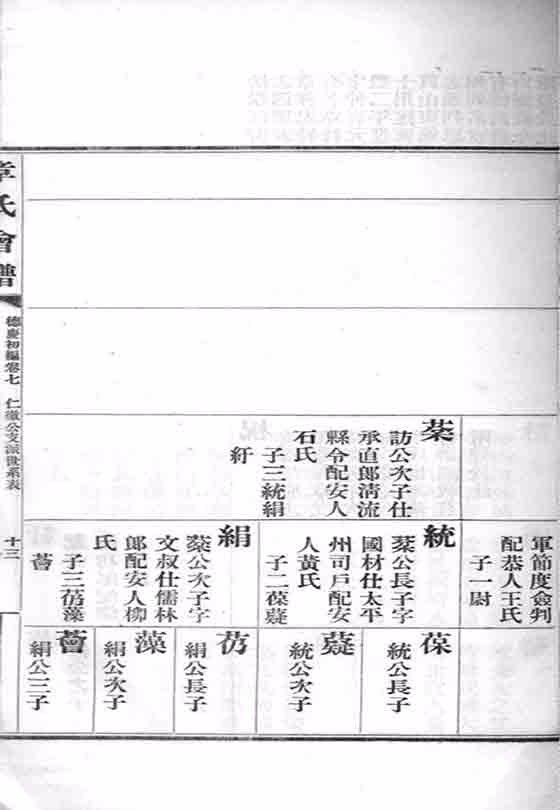 軍節度僉判
配恭人王氏
子一尉
蕠
訪公次子仕
承直郎淸流
縣令配安人
石氏
子三統絹
紆
統
蕠公長子字
國材仕太平
州司戶配安
人黃氏
子二葆薿
絹
蕠公次子字
文叔仕儒林
郎配安人柳
氏
子三蒨藻
薈
葆
統公長子
薿
統公次子
絹公長子
藻
絹公次子
薈
絹公三子
章氏會譜
德慶初編卷七
仁徽公支派世系表
十三